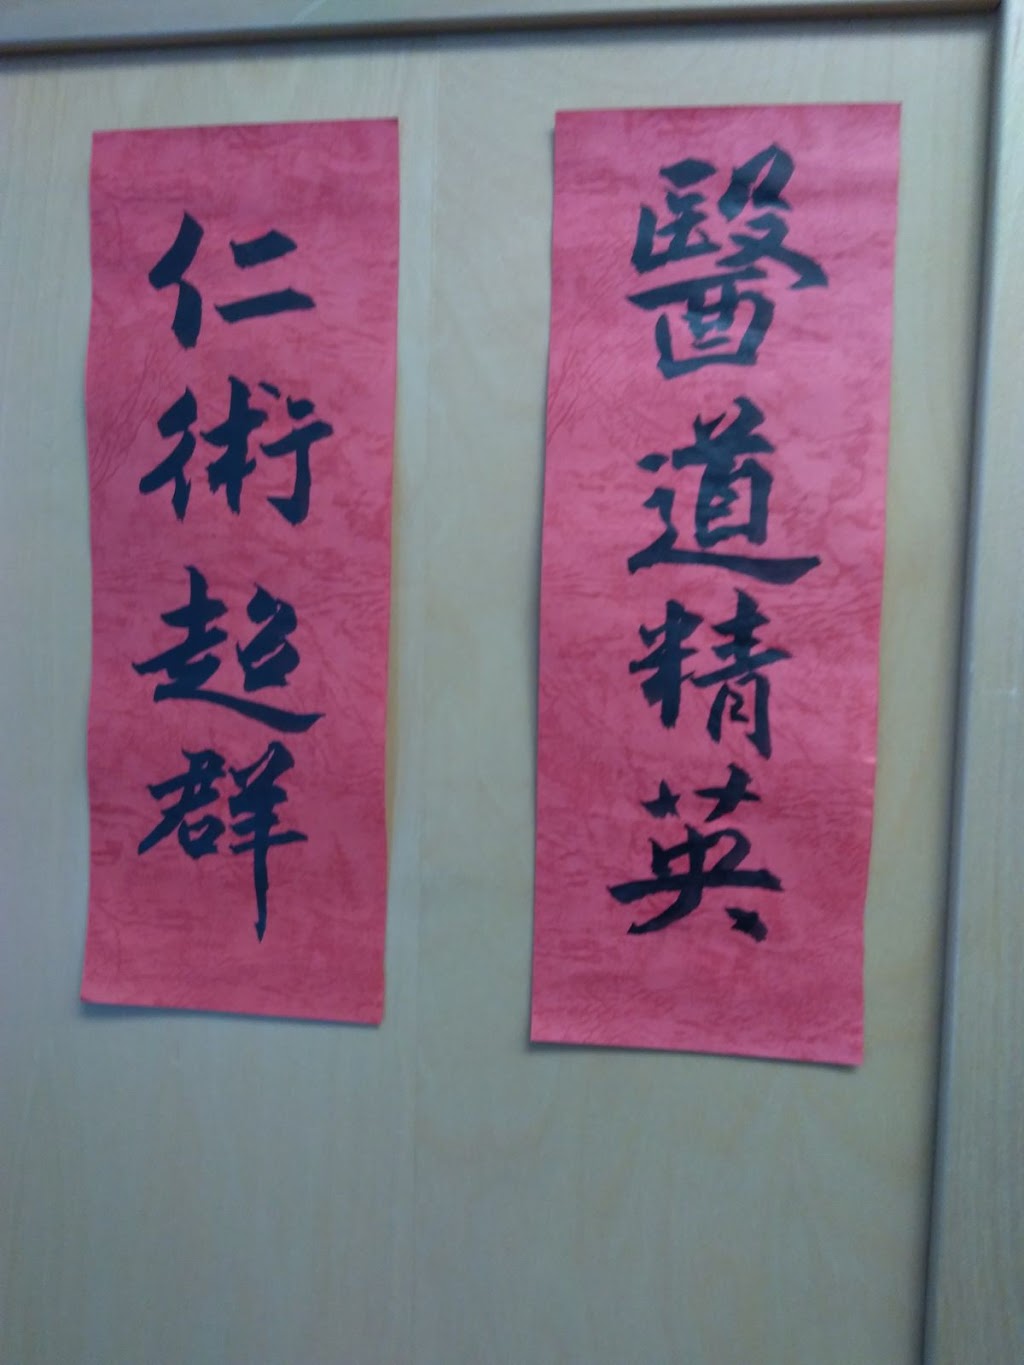 醫道精英
仁術超群